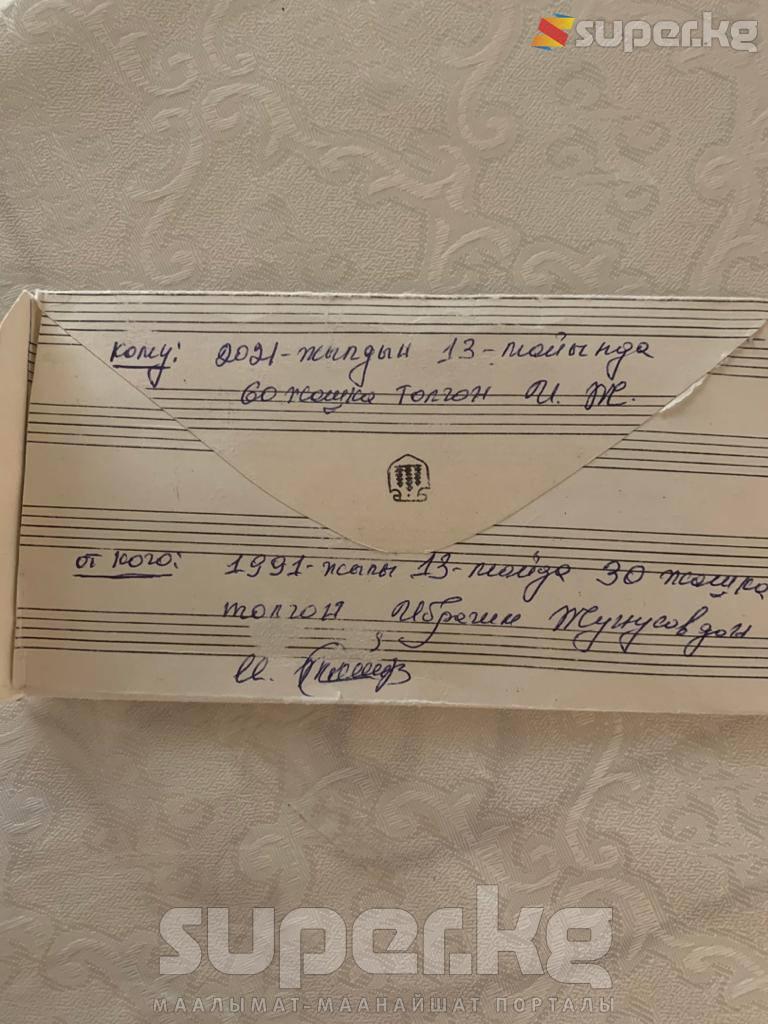 super.kg
кому: 2021-жылдын 13-майында
60 жашка толгон И. Ж.
от кого: 1991-жылы 13-майда 30 жашка
толгон Ибрагим Жунусовдон
И.
super.kg
МААЛЫМАТ-МААНАЙШАТ ПОРТАЛЫ